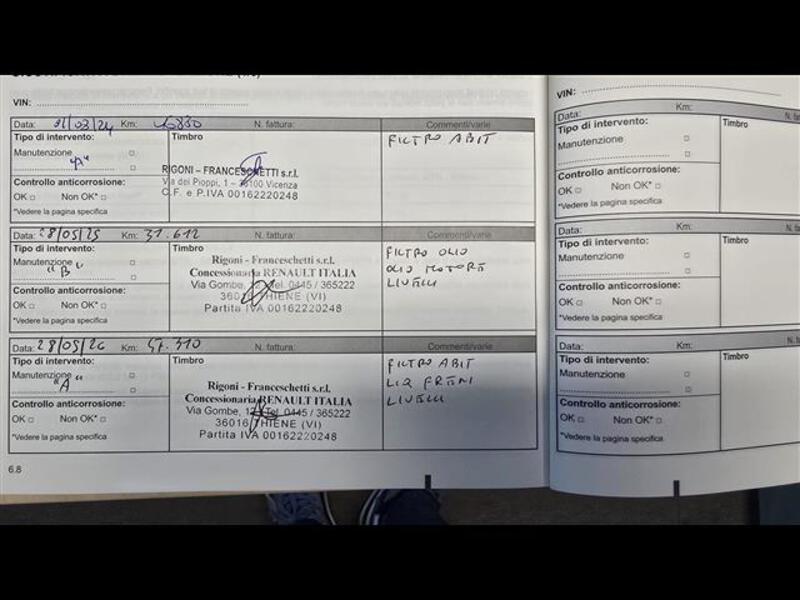 VIN:
Data: 21/03/24 Km: N. fattura: Commenti/varie
Tipo di intervento: Timbro
FILTRO ABIT
Manutenzione
"A"
RIGONI – FRANCESCHETTI s.r.l.
Via dei Pioppi, 1 – 36100 Vicenza
C.F. e P.IVA 00162220248
Controllo anticorrosione:
OK Non OK*
*Vedere la pagina specifica
Data: 28/05/25 Km: 31.612 N. fattura: Commenti/varie
Tipo di intervento: Timbro
FILTRO OLIO
OLIO MOTORE
LIVELLI
Manutenzione
"B"
Rigoni - Franceschetti s.r.l.
Concessionaria RENAULT ITALIA
Via Gombe, Tel. 0445 / 365222
36016 THIENE (VI)
Partita IVA 00162220248
Controllo anticorrosione:
OK Non OK*
*Vedere la pagina specifica
Data: 28/05/26 Km: 57.310 N. fattura: Commenti/varie
Tipo di intervento: Timbro
FILTRO ABIT
LIQ FRENI
LIVELLI
Manutenzione
"A"
Rigoni - Franceschetti s.r.l.
Concessionaria RENAULT ITALIA
Via Gombe, Tel. 0445 / 365222
36016 THIENE (VI)
Partita IVA 00162220248
Controllo anticorrosione:
OK Non OK*
*Vedere la pagina specifica
6.8
VIN:
Data: Km:
Tipo di intervento: Timbro
Manutenzione
Controllo anticorrosione:
OK Non OK
*Vedere la pagina specifica
Data: Km:
Tipo di intervento: Timbro
Manutenzione
Controllo anticorrosione:
OK Non OK*
*Vedere la pagina specifica
Data: Km:
Tipo di intervento: Timbro
Manutenzione
Controllo anticorrosione:
OK Non OK*
*Vedere la pagina specifica